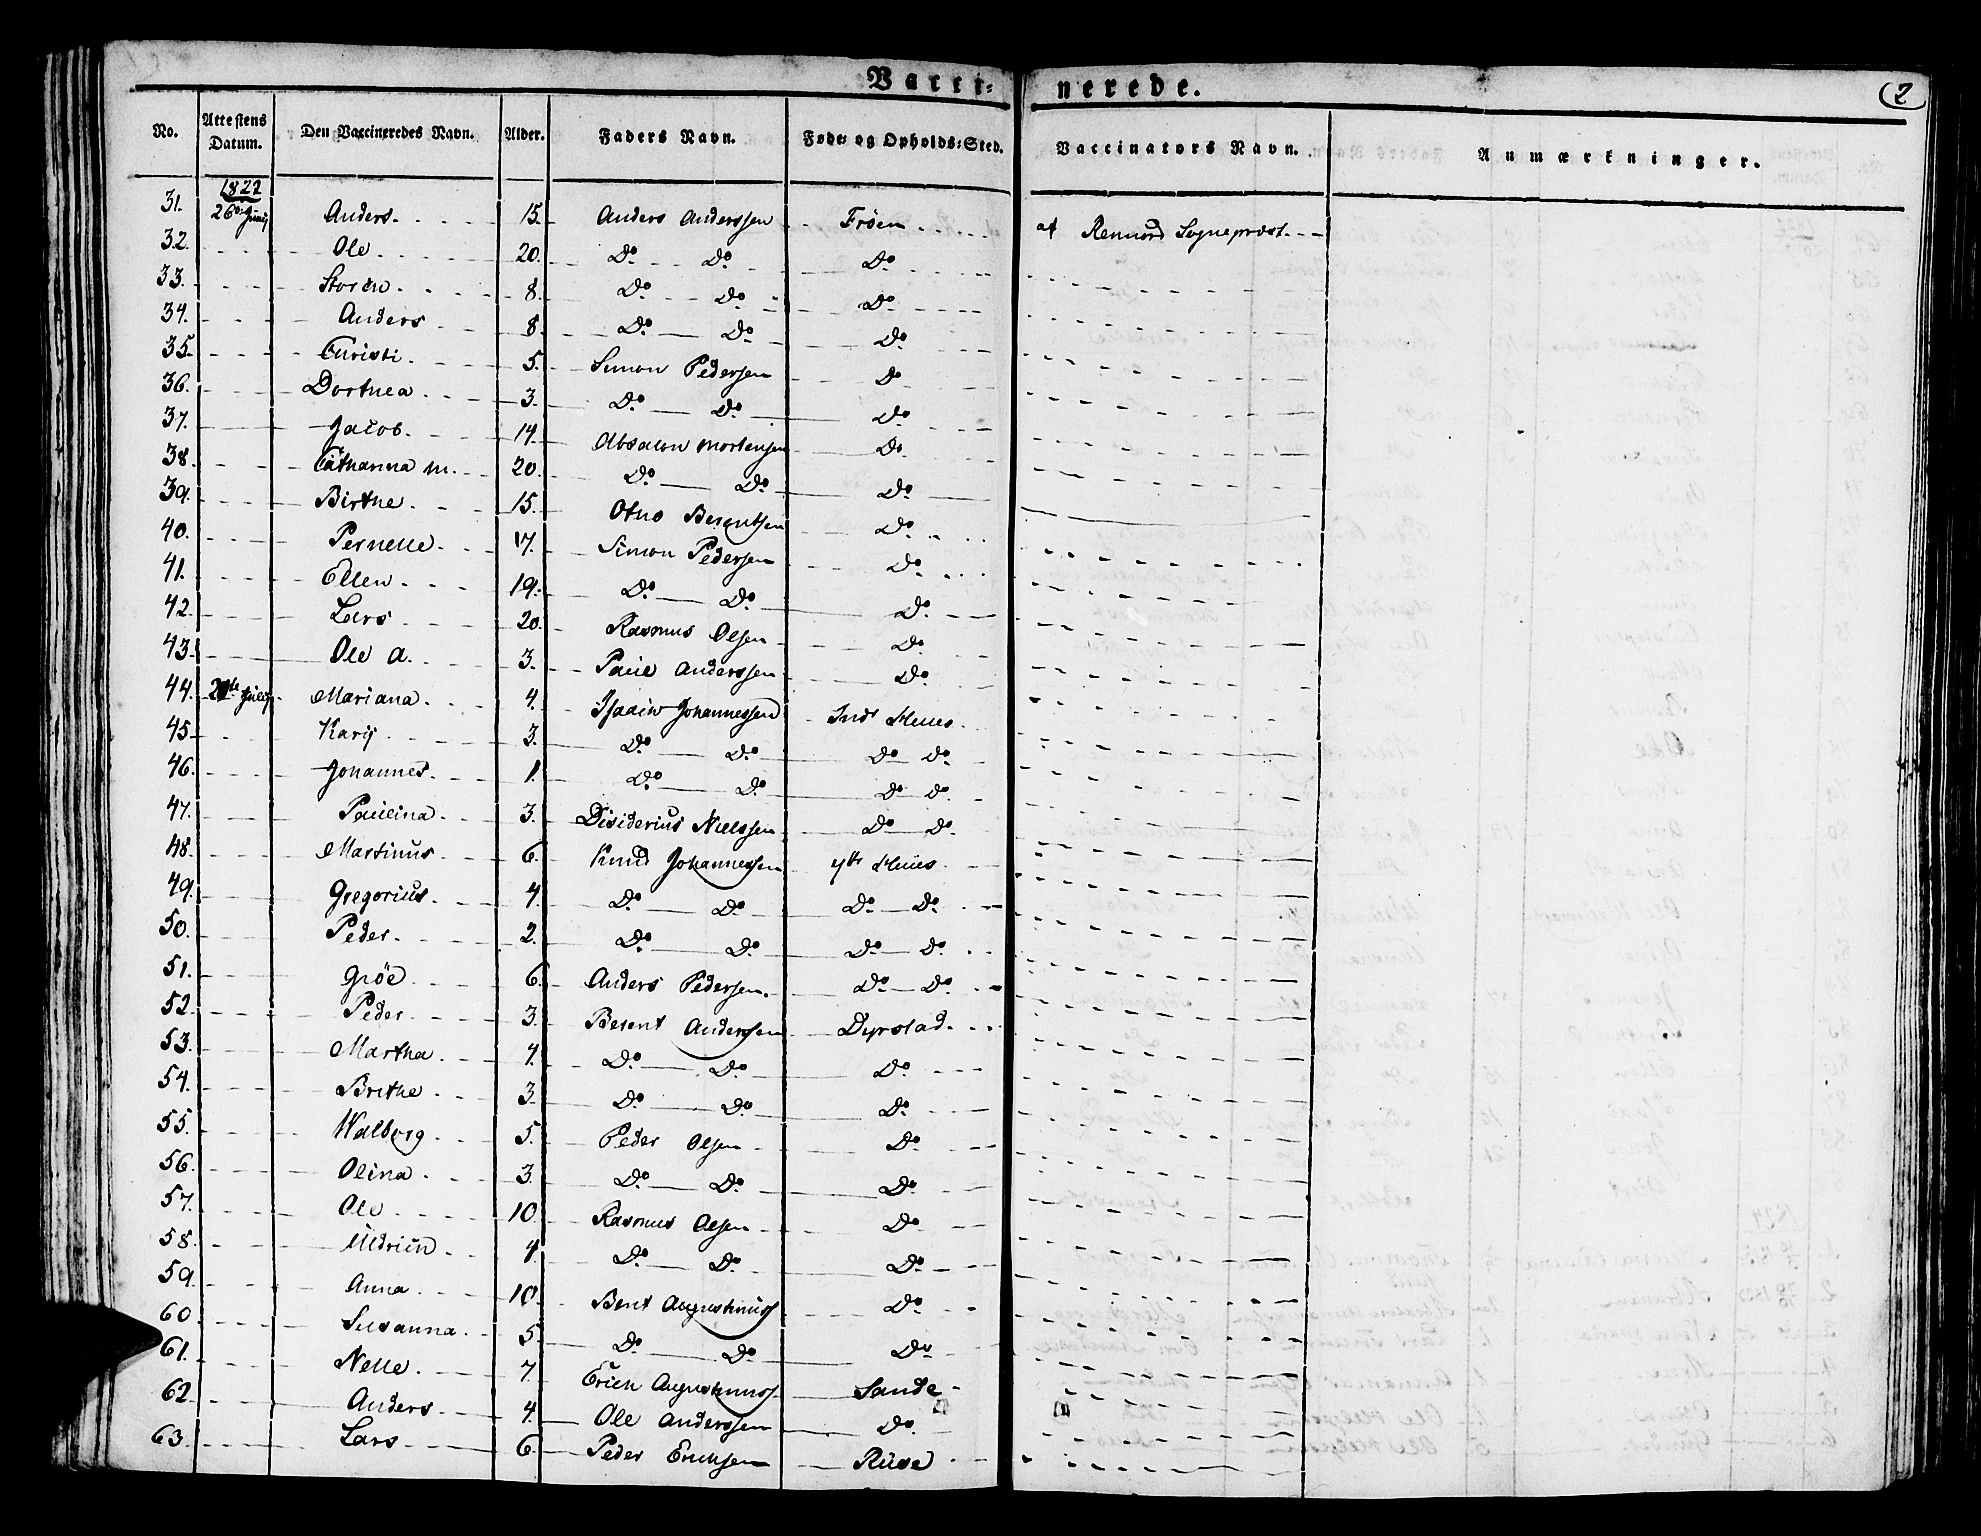 Vacci= nerede.
2
No. Attestens Datum. Den Vaccineredes Navn. Alder. Faders Navn. Føde og Opholds=Sted. Vaccinators Navn. Anmærkninger.
1822
31. 26de Junij Anders. 15. Anders Anderssen Frøen af Rennord Sogneprest.
32. Ole 20. Do Do Do
33. Storen. 8. Do Do Do
34. Anders 8. Do Do Do
35. Christi. 5. Simon Pedersen Do
36. Dorthea 3. Do Do Do
37. Jacob. 14. Absalon Mortensen Do
38. Catharina M. 20. Do Do Do
39. Birthe. 15. Otho Berentsen Do
40. Pernelle. 17. Simon Pedersen Do
41. Ellen 19. Do Do Do
42. Lars 20. Rasmus Olsen Do
43. Ole A. 3. Paul Anderssen Do
44. Julij Mariana. 4. Johannessen Indr Hues.
45. Karij 3. Do Do Do Do
46. Johannes. 1. Do Do Do Do
47. Paulina. 3. Disiderius Nielssen Do Do
48. Martinus 6. Knud Johannessen Ytr Hues.
49. Gregorius. 4. Do Do Do Do
50. Peder. 2. Do Do Do Do
51. Grøe 6. Anders Pedersen. Do Do
52. Peder 3. Berent Anderssen Dyrstad.
53. Martha 4. Do Do Do
54. Brithe 3. Do Do Do
55. Walborg 5. Peder Olsen Do
56. Olina 3. Do Do Do
57. Ole 10 Rasmus Olsen Do
58. 4. Do Do Do
59. Anna 10. Bent Augustinuss Do
60 Susanna. 5. Do Do Do
61. Nelle. 7 Erich Augustinuss Sande
62 Anders 4. Ole Anderssen Do
63. Lars 6. Peder Erichsen Ruse